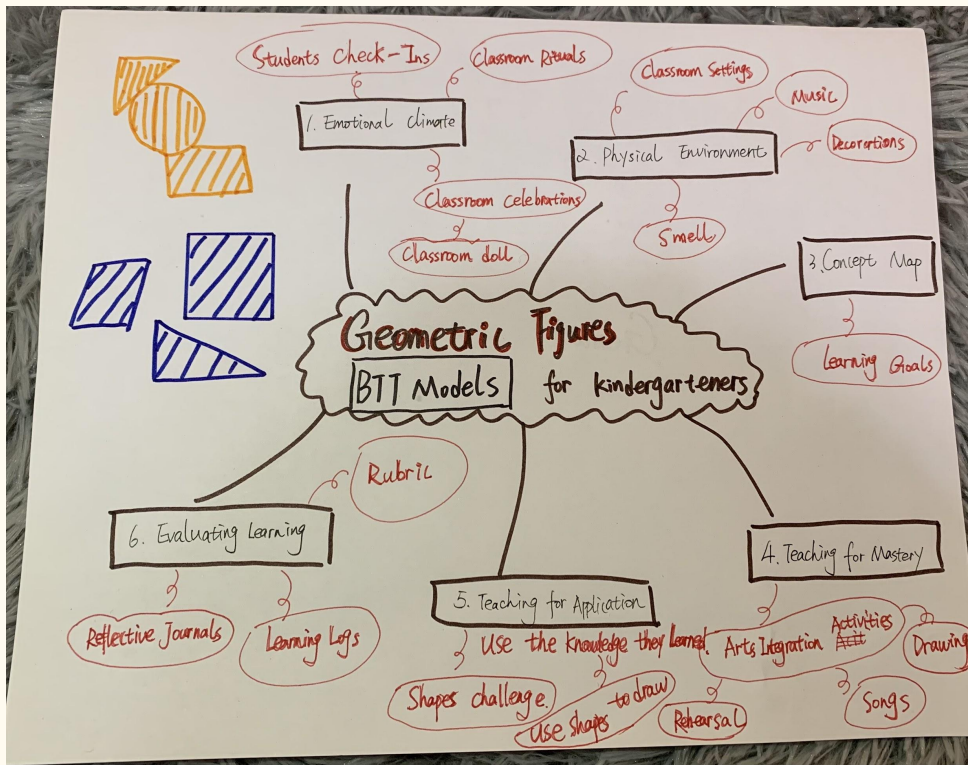 Students Check-Ins
Classroom Rituals
1. Emotional Climate
Classroom Celebrations
Classroom doll
Classroom Settings
Music
2. Physical Environment
Decorartions
Smell
3. Concept Map
Learning Goals
Geometric Figures
BTT Models for kindergarteners
Rubric
6. Evaluating Learning
Reflective Journals
Learning Logs
5. Teaching for Application
Use the knowledge they learned.
Shapes challenge.
Use shapes to draw
4. Teaching for Mastery
Arts Integration Activities
Drawing
Rehearsal
Songs